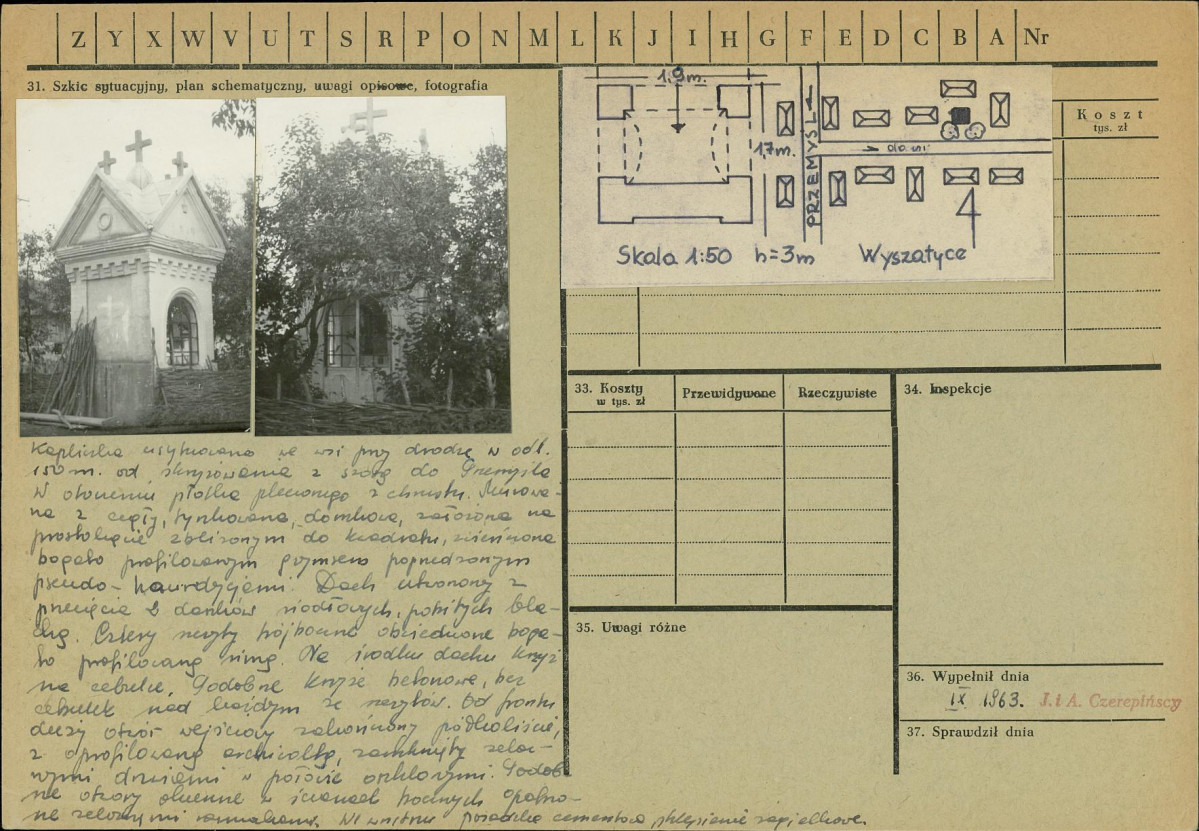 Z Y X W V U T S R P O N M L K J I H G F E D C B A Nr
31. Szkic sytuacyjny, plan schematyczny, uwagi opisowe, fotografia
1,9m.
1,7m.
PRZEMYŚL
do wsi
Skala 1:50 h=3m Wyszatyce
Koszt
tys. zł
33. Koszty
w tys. zł
Przewidywane
Rzeczywiste
34. Inspekcje
35. Uwagi różne
36. Wypełnił dnia
IX 1963. J. i A. Czerepińscy
37. Sprawdził dnia
Kapliczka usytuowana we wsi przy drodze w odl.
150 m. od skrzyżowania z szosą do Przemyśla
W otoczeniu płotka plecionego z chrustu. Murowa-
na z cegły, tynkowana, domkowa, założona na
prostokącie zbliżonym do kwadratu, zwieńczona
bogato profilowanym gzymsem poprzedzonym
pseudo-hurdycjami. Dach utworzony z
przecięcia 2 daszków siodłowych, pobitych bla-
chą. Cztery szczyty trójkątne obwiedzione boga-
to profilowaną simą. Na środku dachu krzyż
na cebulce. Podobne krzyże betonowe, bez
cebulek nad każdym ze szczytów. Od frontu
duży otwór wejściowy zakończony półkoliście,
z profilowaną archiwoltą, zamknięty żelaz-
nymi drzwiami w połowie oszklonymi. Podob-
ne otwory okienne w ścianach bocznych opatrzo-
ne żelaznymi ramkami. We wnętrzu posadzka cementowa sklepienie żagielkowe.